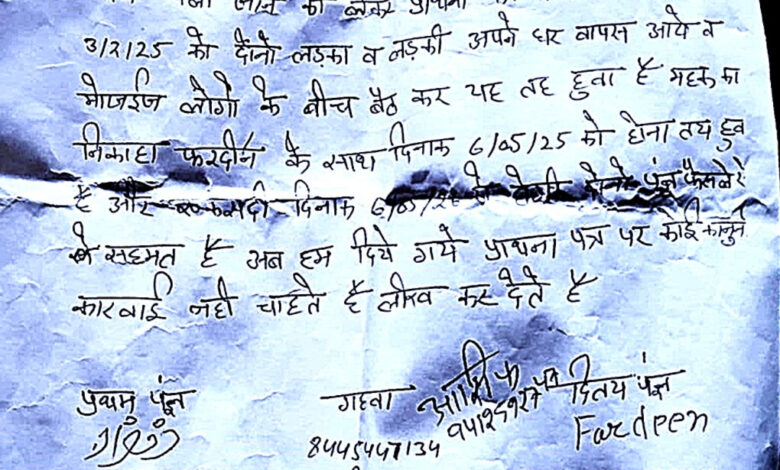 को लेकर
3/2/25 को दोनो लडका व लड़की अपने घर वापस आये व
मोजईज लोगो के बीच बैठ कर यह तह हुवा है महक का
निकाहा फरदीन के साथ दिनाक 6/05/25 को होना तय हुव
है और रूकसदी दिनाक दोनो पंक्ष फैसले से
सहमत है अब हम दिये गये प्राथना पत्र पर कोई कानुन
कारवाई नही चाहते है लीख कर देते है
प्रथम पंक्ष गहवा आशिफ दितय पंक्ष
8445447134 Fardeen